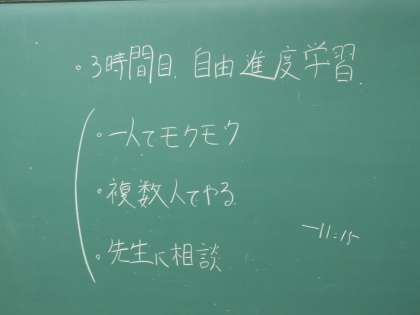 。3時間目.自由進度学習.
。一人でモクモク
。複数人でやる.
。先生に相談
ー11:15